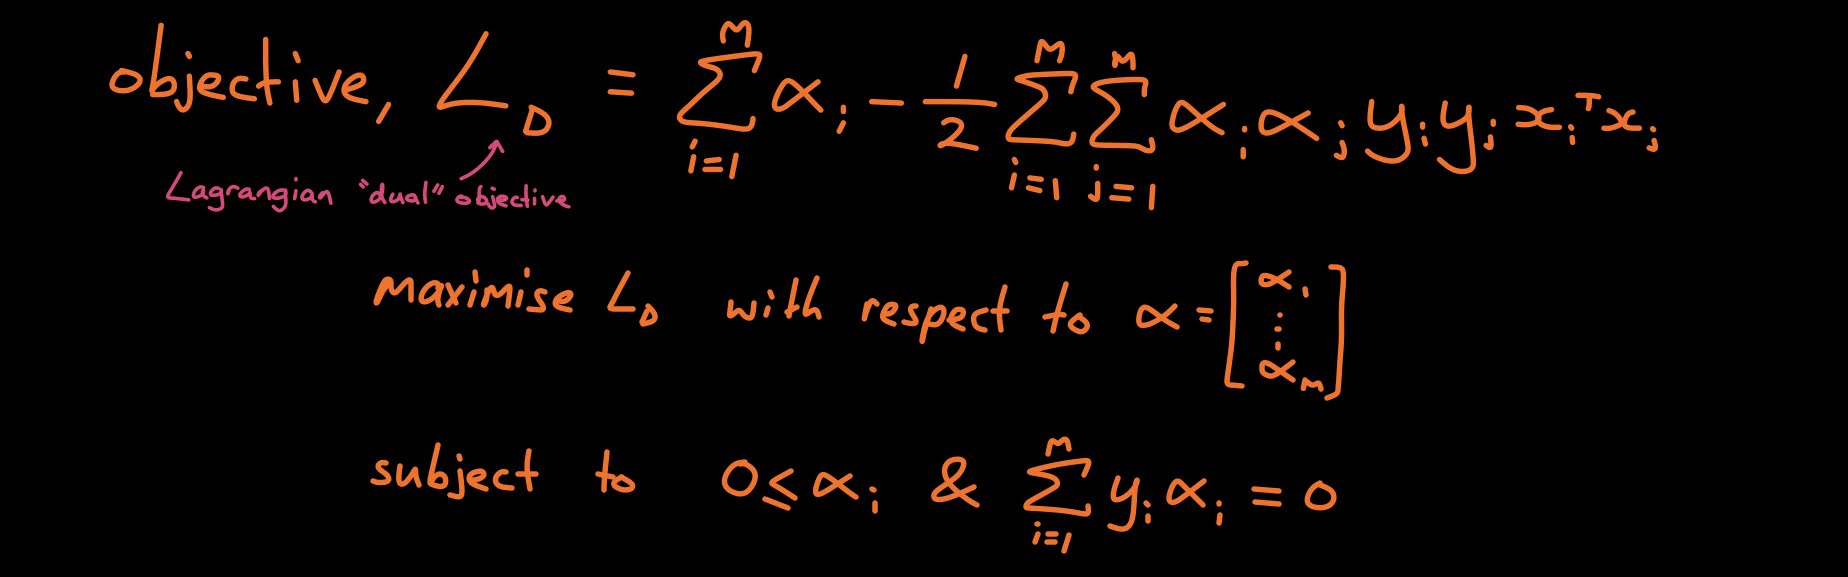 objective, L_D = \sum_{i=1}^{m} α_i - \frac{1}{2} \sum_{i=1}^{m} \sum_{j=1}^{m} α_i α_j y_i y_j x_i^T x_j
Lagrangian "dual" objective
maximise L_D with respect to α = [α_1 ⋮ α_m]
subject to 0 ≤ α_i & \sum_{i=1}^{m} y_i α_i = 0